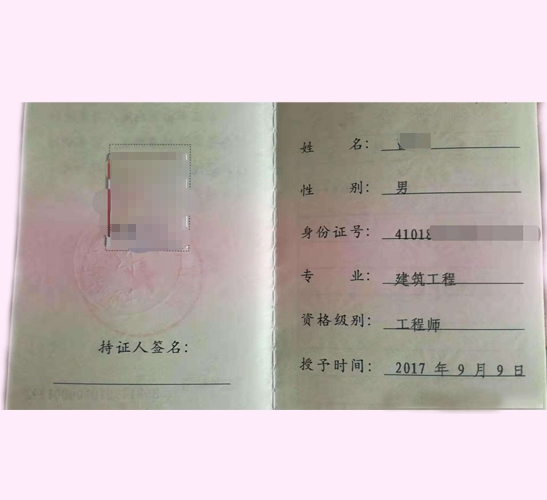 持证人签名：
姓 名：
性 别： 男
身份证号： 41018
专 业： 建筑工程
资格级别： 工程师
授予时间： 2017 年 9 月 9 日